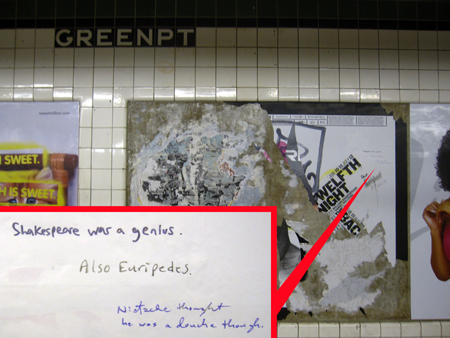 GREENPT
SWEET.
H IS SWEET.
TWELFTH
NIGHT
Shakespeare was a genius.
Also Euripedes.
Nietzche thought
he was a douche though.